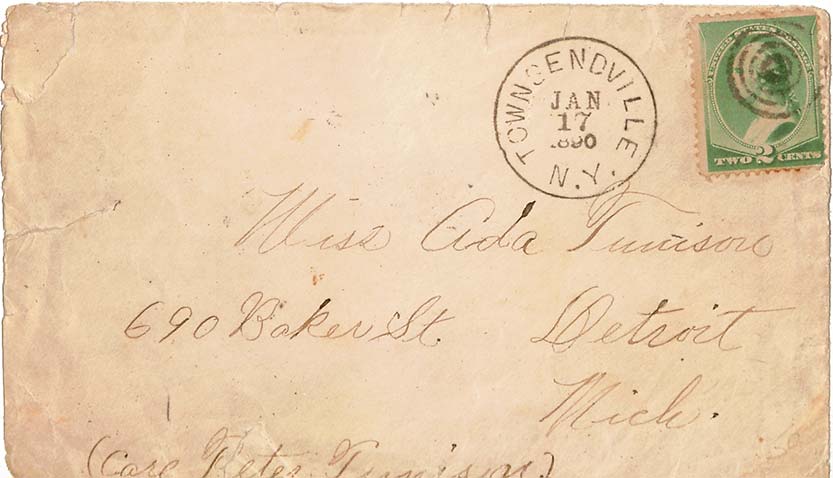 UNITED STATES POSTAGE
TWO 2 CENTS
TOWNSENDVILLE
JAN
17
1890
N.Y.
Miss Ada Tunison
690 Baker St. Detroit
Mich.
(Care Peter Tunison)